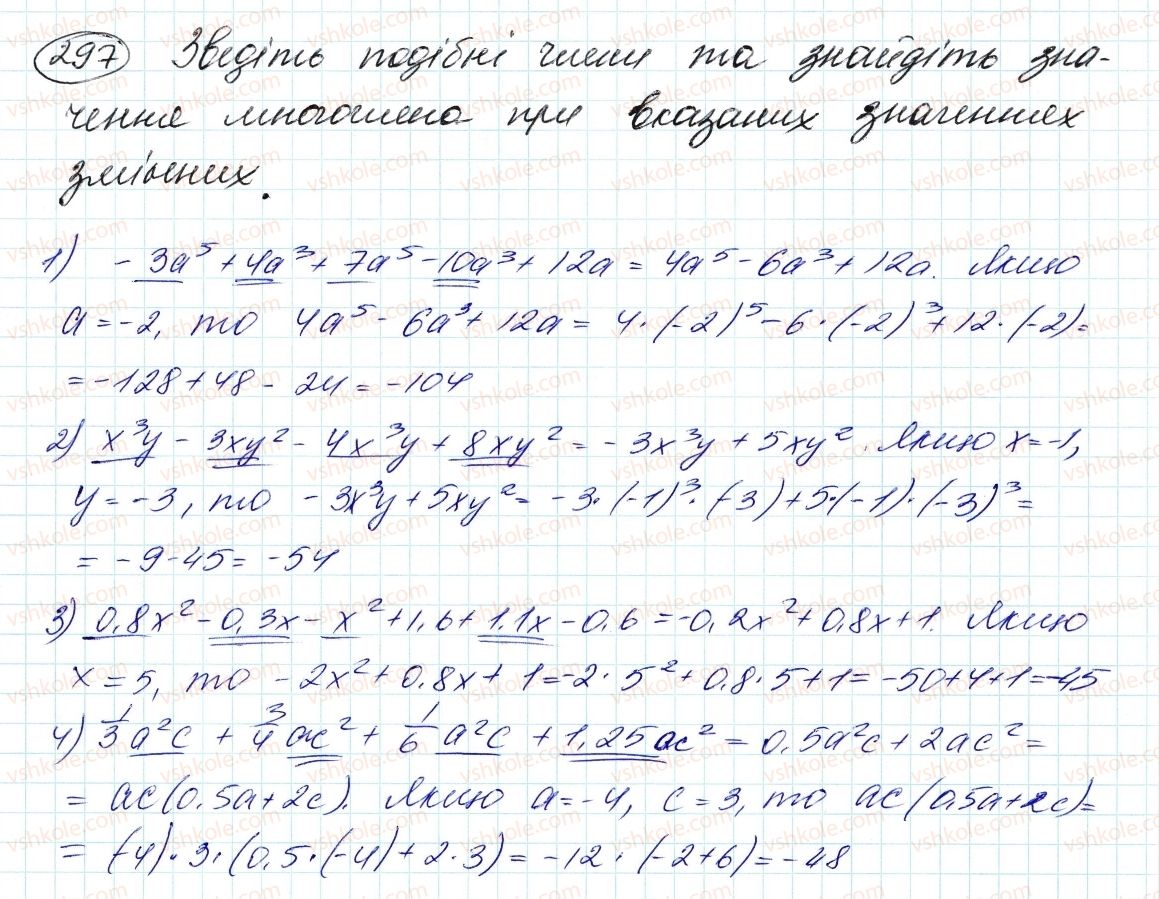 297 Зведіть подібні члени та знайдіть зна-
чення многочлена при вказаних значеннях
змінних.
1) -3a⁵ + 4a³ + 7a⁵ - 10a³ + 12a = 4a⁵ - 6a³ + 12a. Якщо
a = -2, то 4a⁵ - 6a³ + 12a = 4·(-2)⁵ - 6·(-2)³ + 12·(-2) =
= -128 + 48 - 24 = -104
2) x³y - 3xy² - 4x³y + 8xy² = -3x³y + 5xy². Якщо x = -1,
y = -3, то -3x³y + 5xy² = -3·(-1)³·(-3) + 5·(-1)·(-3)³ =
= -9 - 45 = -54
3) 0,8x² - 0,3x - x² + 1,6 + 1,1x - 0,6 = -0,2x² + 0,8x + 1. Якщо
x = 5, то -2x² + 0,8x + 1 = -2·5² + 0,8·5 + 1 = -50 + 4 + 1 = -45
4) 1/3 a²c + 3/4 ac² + 1/6 a²c + 1,25ac² = 0,5a²c + 2ac² =
= ac(0,5a + 2c). Якщо a = -4, c = 3, то ac(0,5a + 2c) =
= (-4)·3·(0,5·(-4) + 2·3) = -12·(-2 + 6) = -48